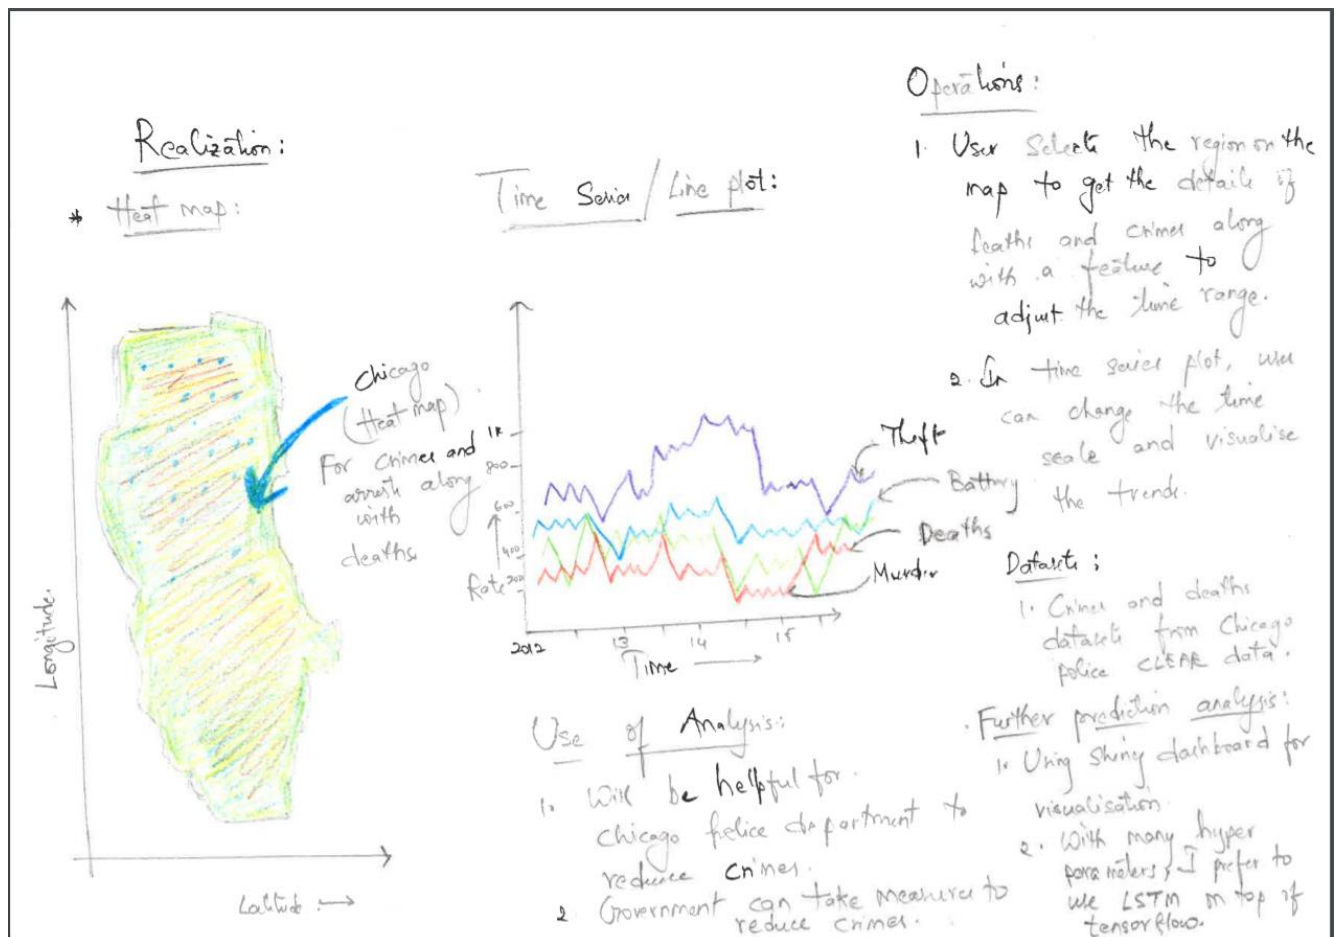 Realization:
* Heat map:
Longitude.
Latitude →
Chicago
(Heat map)
For crimes and
arrests along
with
deaths
Time Series / Line plot:
1K
800
600
400
200
Rate
2012
13
14
15
Time →
Theft
Battery
Deaths
Murder
Use of Analysis:
1. Will be helpful for
chicago police department to
reduce crimes.
2. Government can take measures to
reduce crimes.
Operations:
1. User Selects the region on the
map to get the details of
deaths and crimes along
with a feature to
adjust the time range.
2. In time series plot, user
can change the time
scale and visualise
the trends.
Datasets:
1. Crimes and deaths
datasets from Chicago
police CLEAR data.
Further prediction analysis:
1. Using Shiny dashboard for
visualisation.
2. With many hyper
parameters, I prefer to
use LSTM on top of
tensorflow.